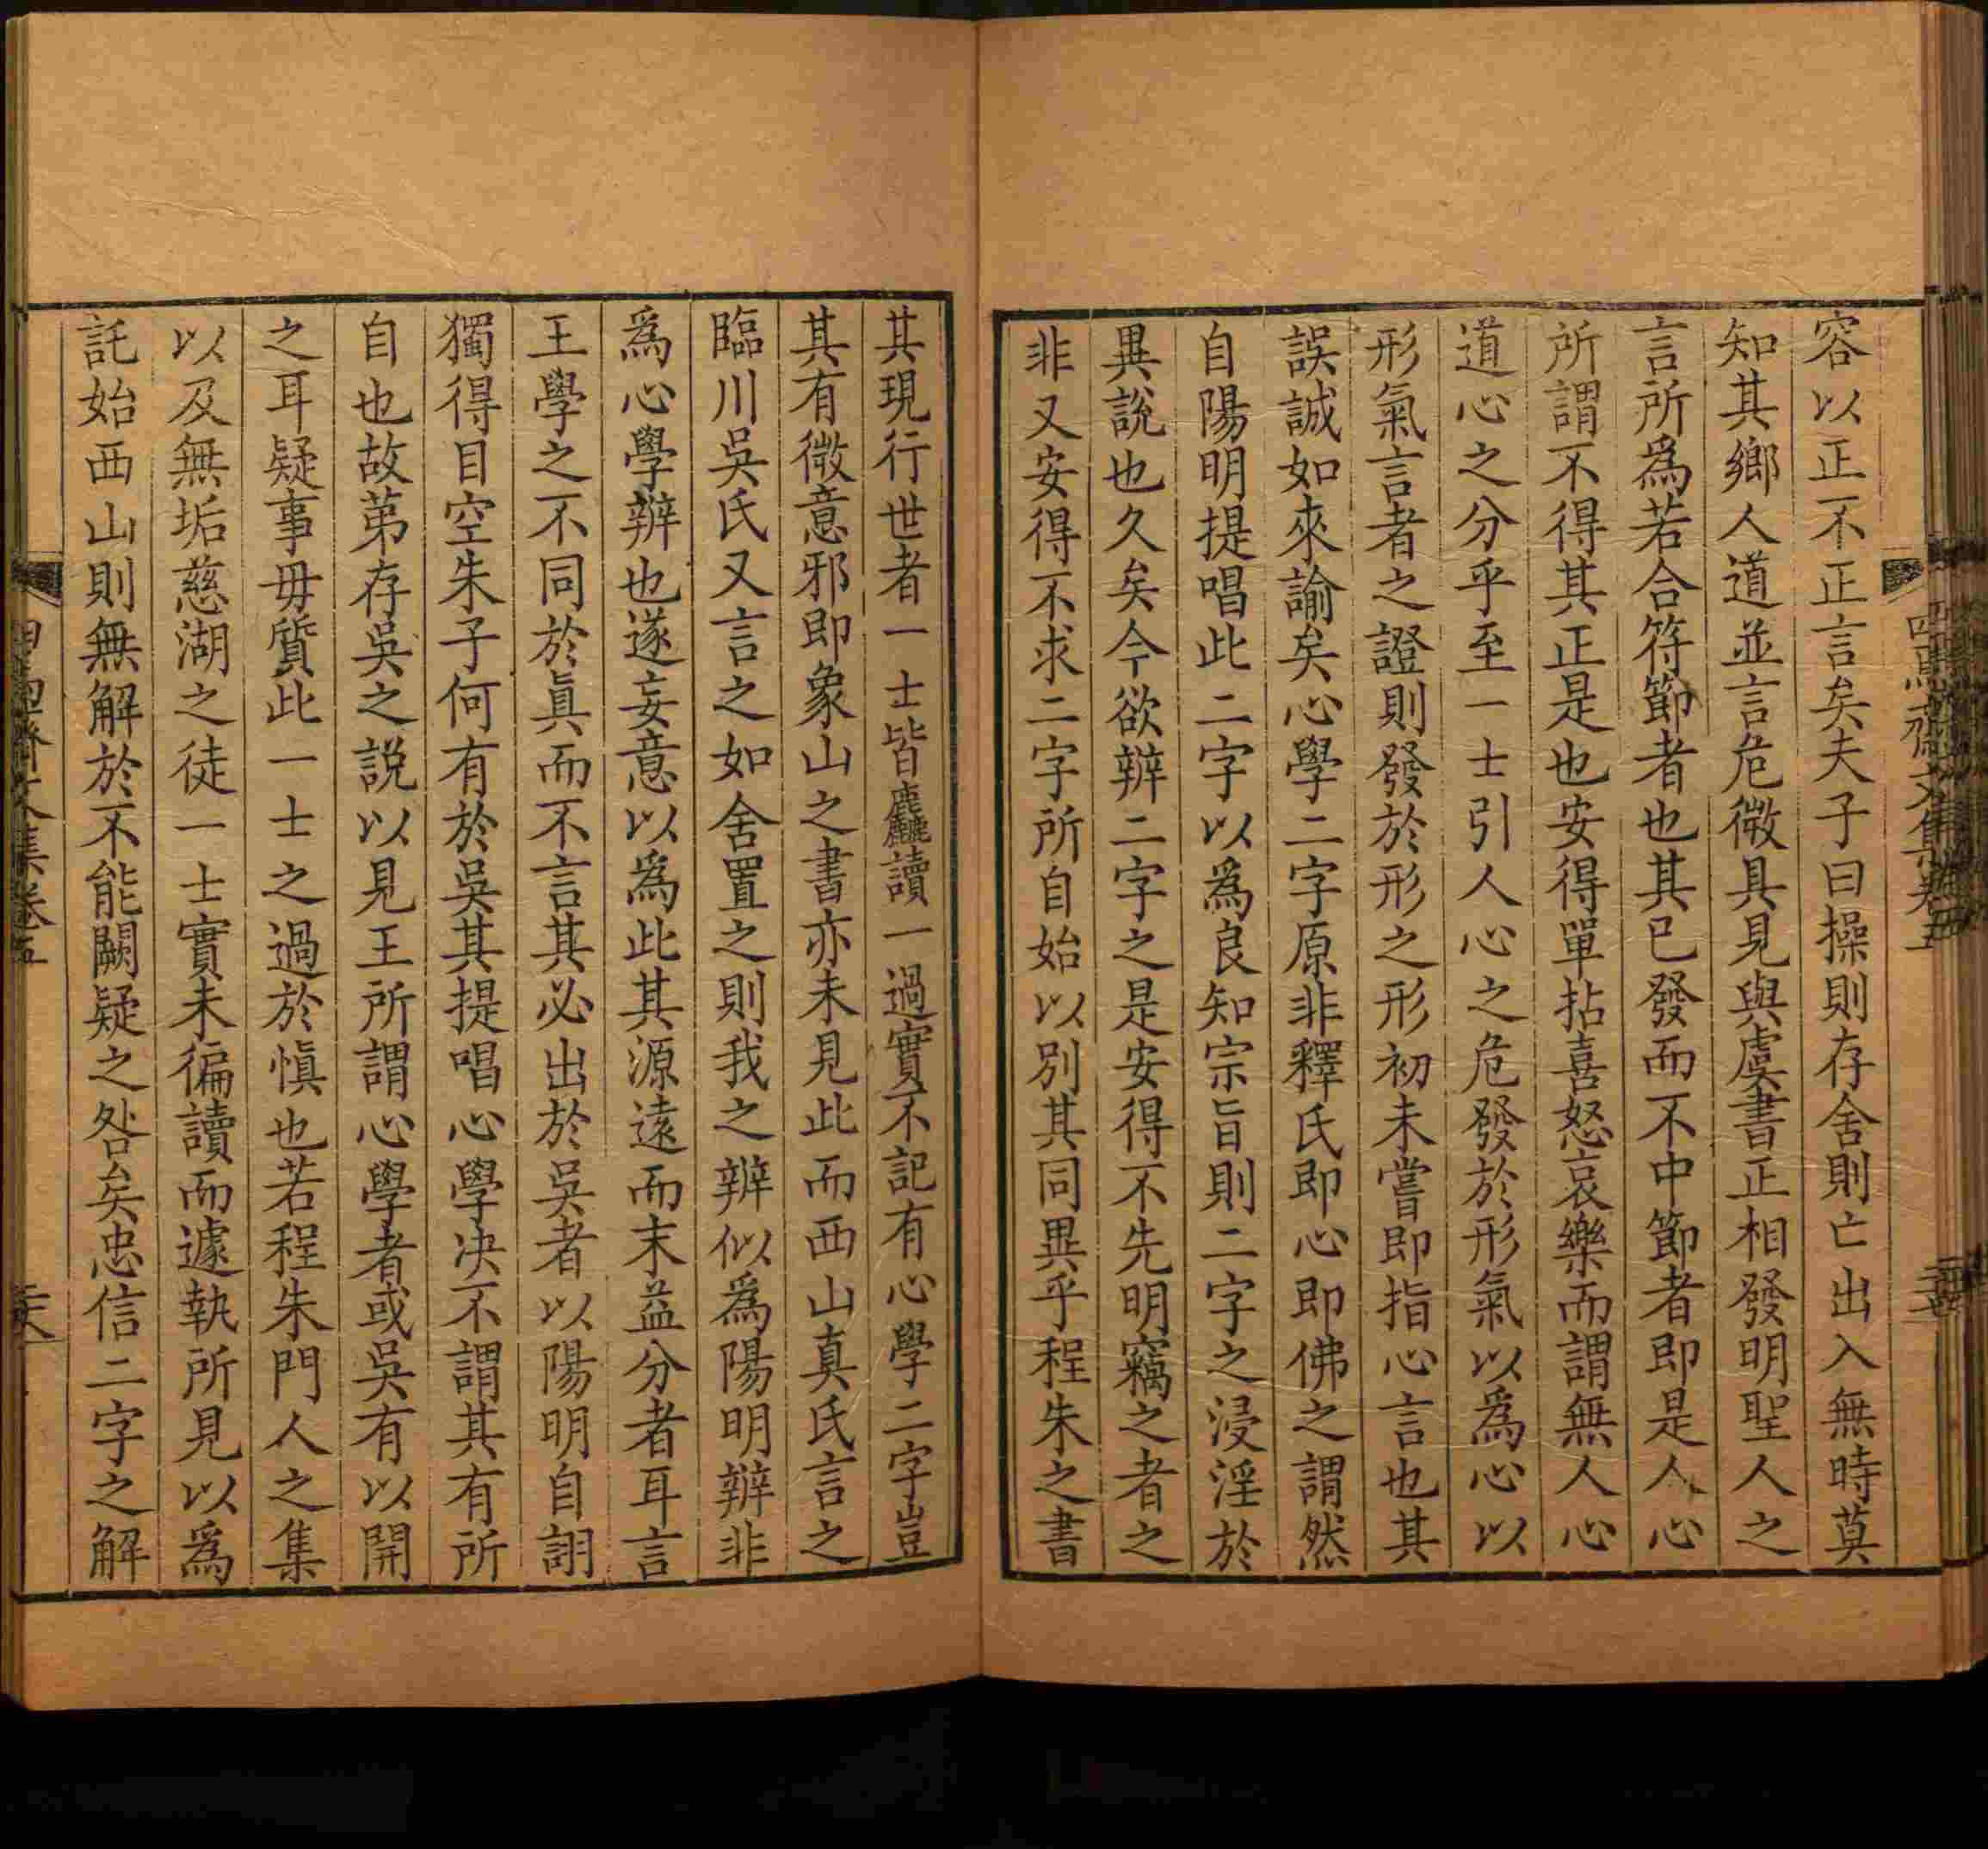 容以正不正言矣夫子曰操則存舍則亡出入無時莫
知其鄉人道並言危微具見與虞書正相發明聖人之
言所爲若合符節者也其已發而不中節者即是人心
所謂不得其正是也安得單拈喜怒哀樂而謂無人心
道心之分乎至一士引人心之危發於形氣以爲心以
形氣言者之證則發於形之形初未嘗即指心言也其
誤誠如來諭矣心學二字原非釋氏即心即佛之謂然
自陽明提唱此二字以爲良知宗旨則二字之浸淫於
異說也久矣今欲辨二字之是安得不先明竊之者之
非又安得不求二字所自始以別其同異乎程朱之書
其現行世者一士皆麤讀一過實不記有心學二字豈
其有微意邪即象山之書亦未見此而西山真氏言之
臨川吳氏又言之如舍置之則我之辨似爲陽明辨非
爲心學辨也遂妄意以爲此其源遠而末益分者耳言
王學之不同於眞而不言其必出於吳者以陽明自詡
獨得目空朱子何有於吳其提唱心學决不謂其有所
自也故苐存吳之説以見王所謂心學者或吳有以開
之耳疑事毋質此一士之過於慎也若程朱門人之集
以及無垢慈湖之徒一士實未徧讀而遽執所見以爲
託始西山則無解於不能闕疑之咎矣忠信二字之解
文集卷五